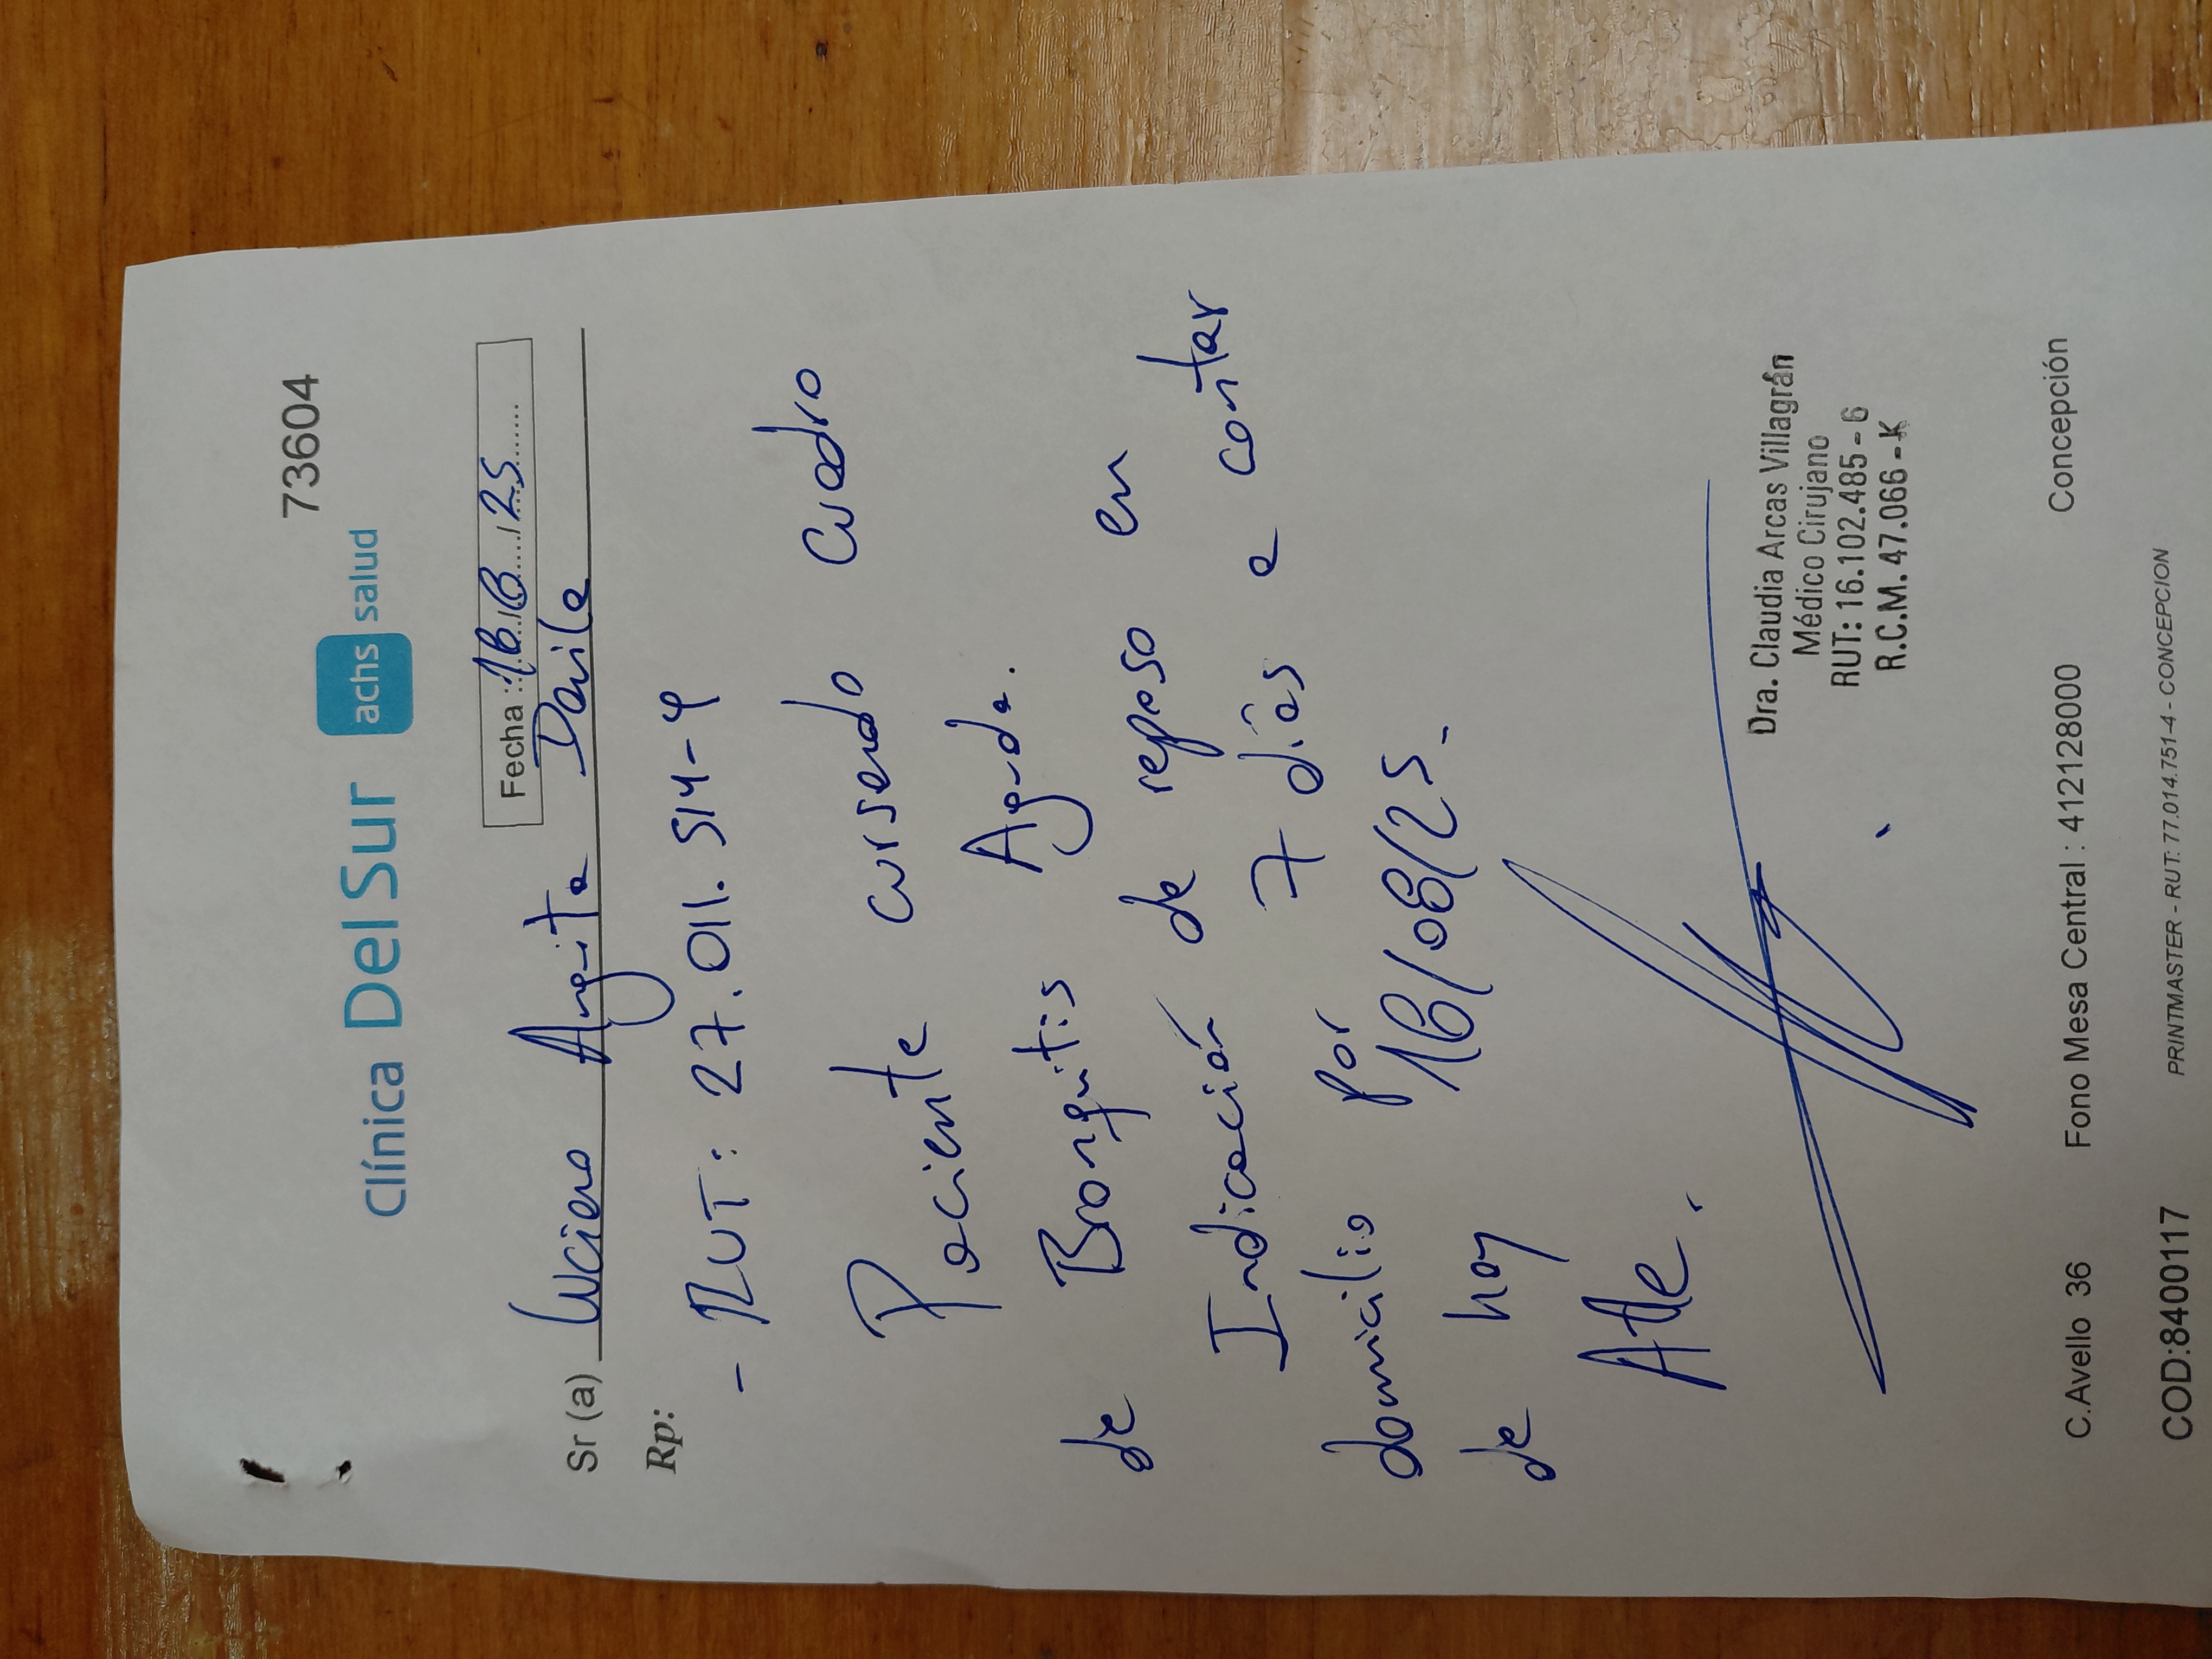 73604
Clínica Del Sur achs salud
Fecha : 18 / 8 / 25
Sr (a) Luciano Angita Davila
Rp:
- RUT: 27.011.514-4
Paciente cursando cuadro
de Bronquitis Aguda.
Indicación de reposo en
domicilio por 7 días a contar
de hoy 18/08/25.
Atte.
Dra. Claudia Arcas Villagrán
Médico Cirujano
RUT: 16.102.485-6
R.C.M. 47.066-K
C.Avello 36 Fono Mesa Central : 412128000 Concepción
COD:8400117 PRINTMASTER - RUT: 77.014.751-4 - CONCEPCION